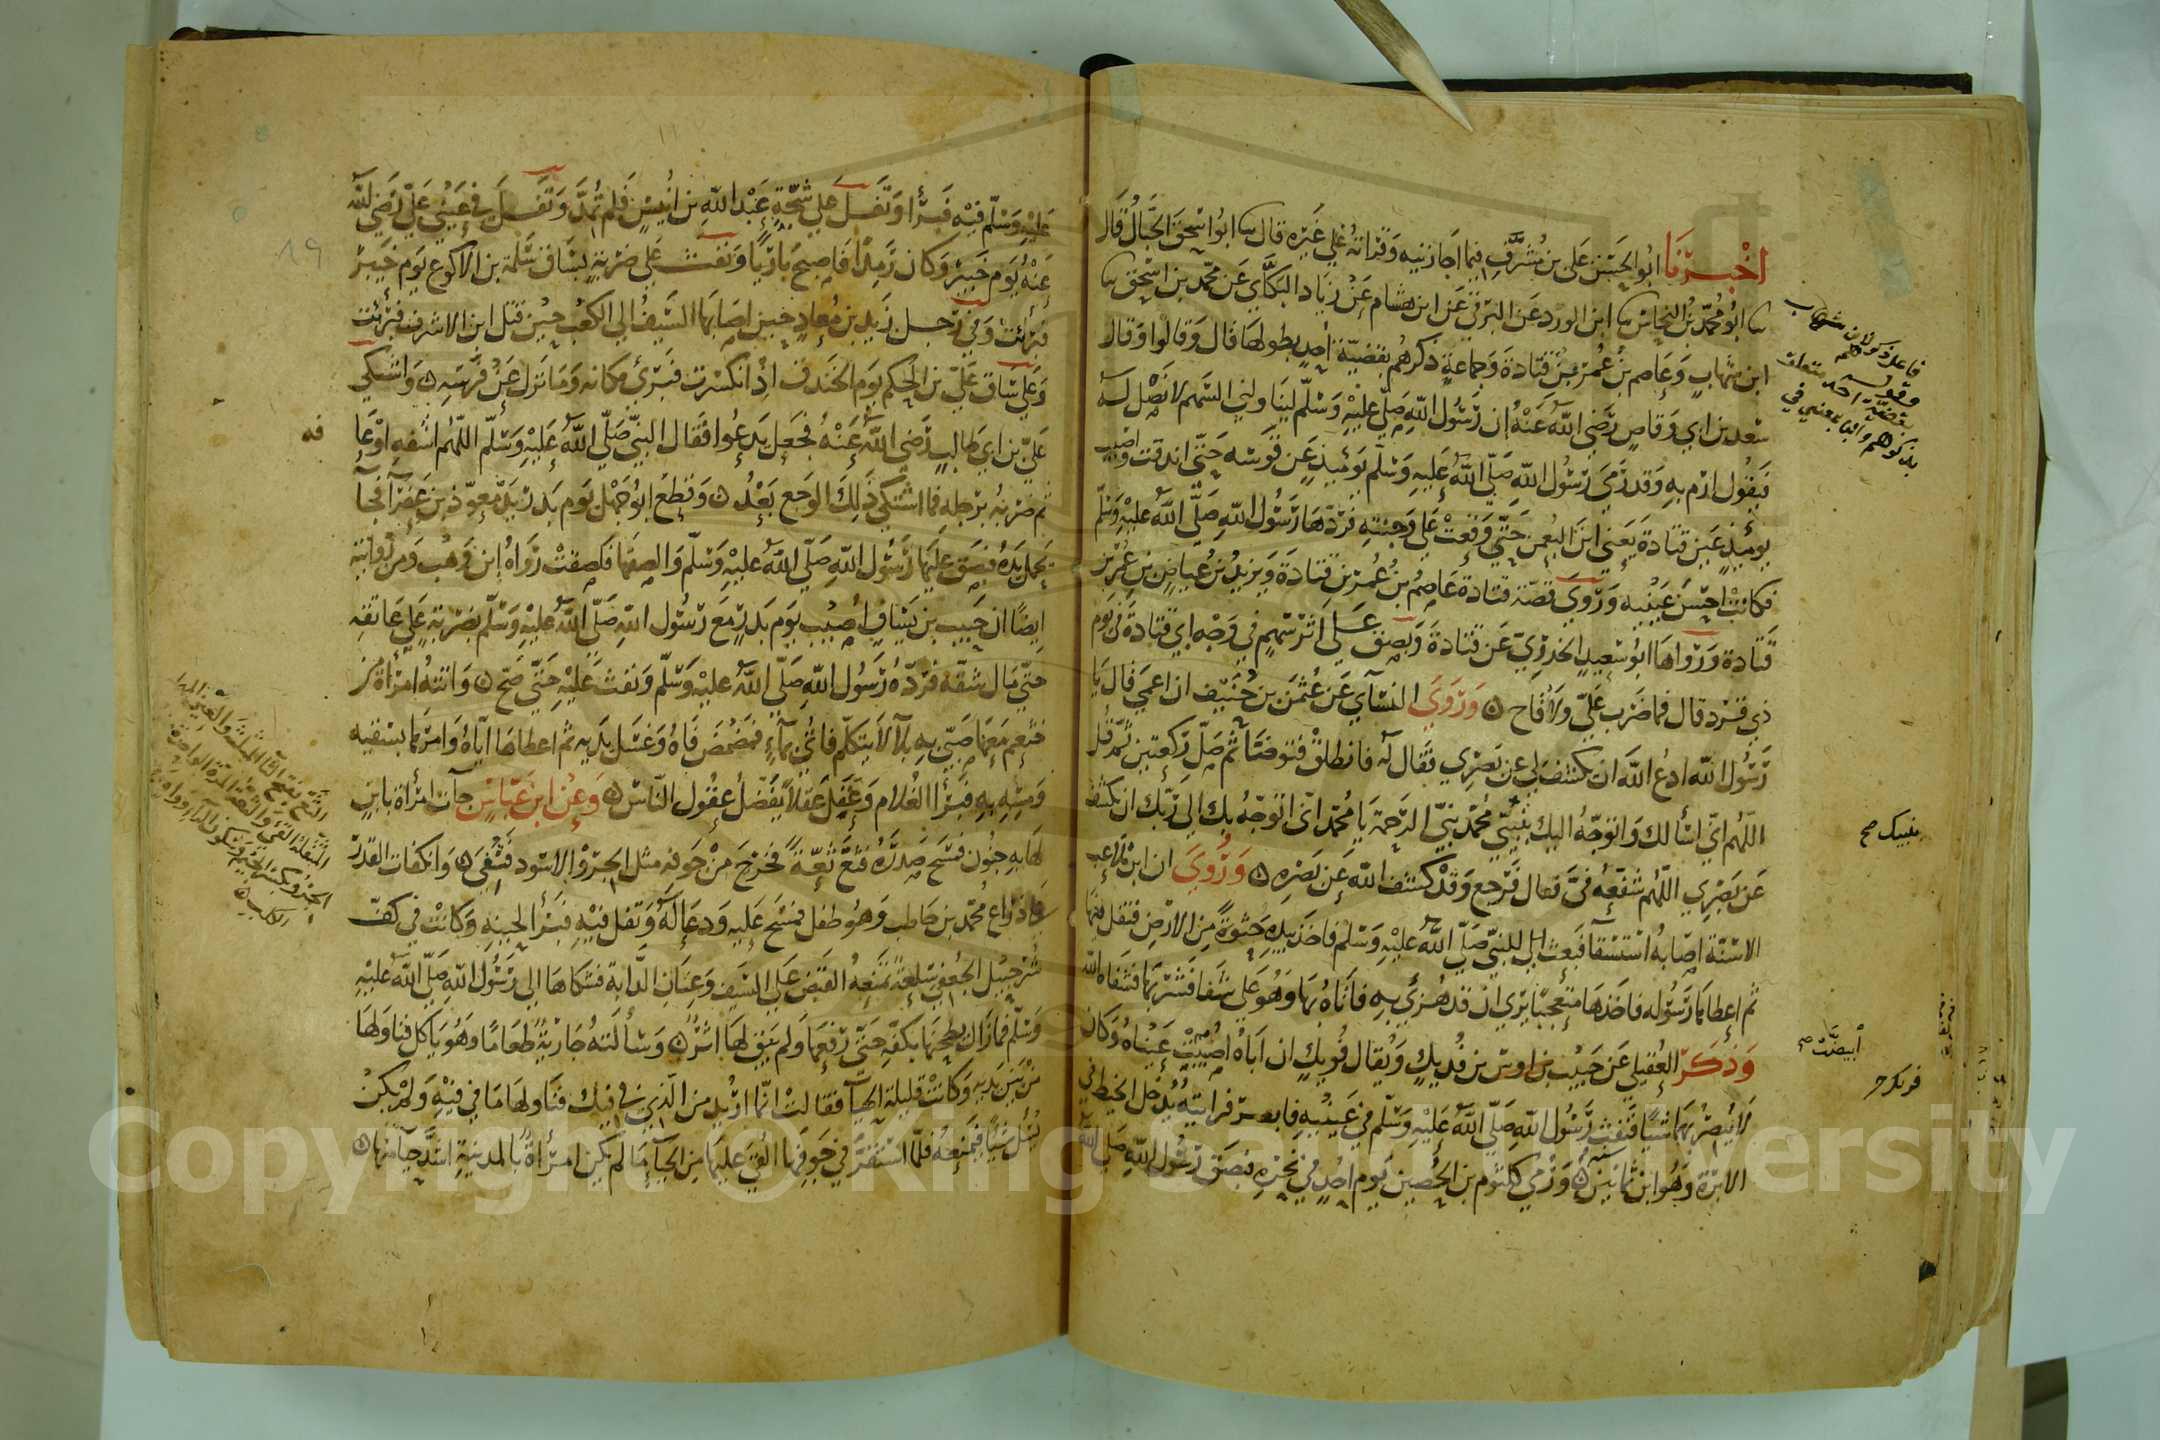 اخبرنا ابو الحسن على بن مشرف فيما اجازنيه وقراته على غيره قال نا ابو اسحق الحبال قال
نا ابو محمد بن النحاس نا ابن الورد عن البرقي عن ابن هشام عن زياد البكائي عن محمد بن اسحق نا
ابن شهاب وعاصم بن عمر بن قتادة وجماعة ذكرهم بقضية احد بطولها قال وقالوا وقال
سعد بن ابي وقاص رضي الله عنه ان رسول الله صلى الله عليه وسلم ليناولني السهم لا نصل له
فيقول ارم به وقد رمى رسول الله صلى الله عليه وسلم يومئذ عن قوسه حتى اندقت واصيب
يومئذ عين قتادة يعني ابن النعمن حتى وقعت على وجنته فردها رسول الله صلى الله عليه وسلم
فكانت احسن عينيه وروى قصة قتادة عاصم بن عمر بن قتادة ويزيد بن عياض بن عمر بن
قتادة ورواها ابو سعيد الخدري عن قتادة وبصق على اثر سهم في وجه ابي قتادة في يوم
ذي قرد قال فما ضرب علي ولا قاح وروى النسآي عن عثمن بن حنيف ان اعمى قال يا
رسول الله ادع الله ان يكشف لي عن بصري فقال له فانطلق فتوضا ثم صل ركعتين ثم قل
اللهم اني اسالك واتوجه اليك بنبيي محمد نبي الرحمة يا محمد اني اتوجه بك الى ربك ان يكشف
عن بصري اللهم شفعه في قال فرجع وقد كشف الله عن بصره وروي ان ابن ملاعب
الاسنة اصابه استسقا فبعث الى النبي صلى الله عليه وسلم فاخذ بيده حثوة من الارض فتفل عليها
ثم اعطاها رسوله فاخذها متعجبا يرى ان قد هزئ به فاتاه بها وهو على شفا فشربها فشفاه الله
وذكر العقيلي عن حبيب بن اوس بن فديك ويقال فويك ان اباه ابيضت عيناه وكان
لا يبصر بهما شيا فنفث رسول الله صلى الله عليه وسلم في عينيه فابصر فرايته يدخل الخيط في
الابرة وهو ابن ثمانين ورمي كلثوم بن الحصين يوم احد في نحره فبصق رسول الله صلى الله
بنبيك صح
ابيضت صح
عليه وسلم فيه فبرا وتفل على شجة عبد الله بن انيس فلم تمد وتفل في عيني علي رضي الله
عنه يوم خيبر وكان رمدا فاصبح بارئا ونفث على ضربة بساق سلمة بن الاكوع يوم خيبر
فبرئت وفي رجل زيد بن معاذ حين اصابها السيف الى الكعب حين قتل ابن الاشرف فبرئت
وعلى ساق علي بن الحكم يوم الخندق اذ انكسرت فبرئ مكانه وما نزل عن فرسه واشتكى
علي بن ابي طالب رضي الله عنه فجعل يدعوا فقال النبي صلى الله عليه وسلم اللهم اشفه او عا
فه
ثم ضربه برجله فما اشتكى ذلك الوجع بعد وقطع ابو جهل يوم بدر يد معوذ بن عفرآ فجآ
يحمل يده فبصق عليها رسول الله صلى الله عليه وسلم والصقها فلصقت رواه ابن وهب ومن روايته
ايضا ان خبيب بن يساف اصيب يوم بدر مع رسول الله صلى الله عليه وسلم بضربة على عاتقه
حتى مال شقه فرده رسول الله صلى الله عليه وسلم ونفث عليه حتى صح واتته امرأة من
خثعم معها صبي به بلآ لا يتكلم فاتي بمآء فمضمض فاه وغسل يديه ثم اعطاها اياه وامرها بسقيه
ومسه به فبرا الغلام وعقل عقلا يفضل عقول الناس وعن ابن عباس جآت امرأة بابن
لها به جنون فمسح صدره فثع ثعة فخرج من جوفه مثل الجرو الاسود فشفي وانكفات القدر
على ذراع محمد بن حاطب وهو طفل فمسح عليه ودعا له وتفل فيه فبرأ لحينه وكانت في كف
شرحبيل الجعفي سلعة تمنعه القبض على السيف وعنان الدابة فشكاها الى رسول الله صلى الله عليه
وسلم فما زال يطحنها بكفه حتى رفعها ولم يبق لها اثر وسألته جارية طعاما وهو ياكل فناولها
من بين يديه وكانت قليلة الحيآ فقالت انما اريد من الذي في فيك فناولها ما في فيه ولم يكن
يسل شيا فيمنعه فلما استقر في جوفها القي عليها من الحيآ ما لم يكن امرأة بالمدينة اشد حيآ منها